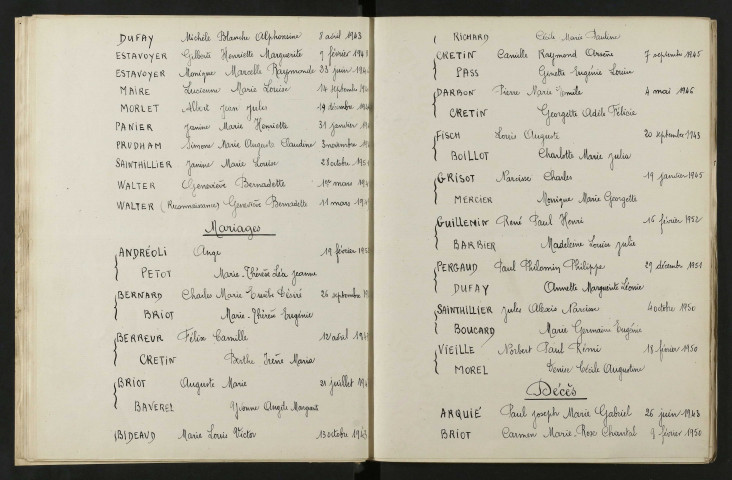 DUFAY Michèle Blanche Alphonsine 8 avril 1943
ESTAVOYER Gilberte Henriette Marguerite 9 février 194
ESTAVOYER Monique Marcelle Raymonde 23 juin 194
MAIRE Lucienne Marie Louise 14 septembre 194
MORLET Albert Jean Jules 19 décembre 194
PANIER Janine Marie Henriette 31 janvier 19
PRUDHAM Simone Marie Augusta Claudine 3 novembre 19
SAINTHILLIER Janine Marie Louise 28 octobre 195
WALTER Geneviève Bernadette 1er mars 194
WALTER (Reconnaissance) Geneviève Bernadette 11 mars 194
Mariages
ANDRÉOLI Ange 19 février 195
PETOT Marie-Thérèse Léa Jeanne
BERNARD Charles Marie Désiré 26 septembre 19
BRIOT Marie-Thérèse Eugénie
BERREUR Félix Camille 12 avril 194
CRETIN Berthe Irène Maria
BRIOT Auguste Marie 21 juillet 194
BAVEREL Yvonne Angèle
BIDEAUD Marie Louis Victor 13 octobre 1943
RICHARD Cécile Marie Pauline
CRETIN Camille Raymond Arsène 7 septembre 1945
PASS Ginette Eugénie
DARBON Pierre Marie Emile 4 mai 1946
CRETIN Georgette Adèle Félicie
FISCH Louis Auguste 20 septembre 1943
BOILLOT Charlotte Marie Julia
GRISOT Narcisse Charles 19 janvier 1945
MERCIER Monique Marie Georgette
GUILLEMIN René Paul Henri 16 février 1952
BARBIER Madeleine Louise Julie
PERGAUD Paul Philomin Philippe 29 décembre 1951
DUFAY Annette Marguerite Léonie
SAINTHILLIER Jules Alexis Narcisse 4 octobre 1950
BOUCARD Marie Germaine Eugénie
VIEILLE Norbert Paul Rémi 18 février 1950
MOREL Denise Cécile Augustine
Décès
ARQUIÉ Paul Joseph Marie Gabriel 26 juin 1943
BRIOT Carmen Marie-Rose Chantal 9 février 1950